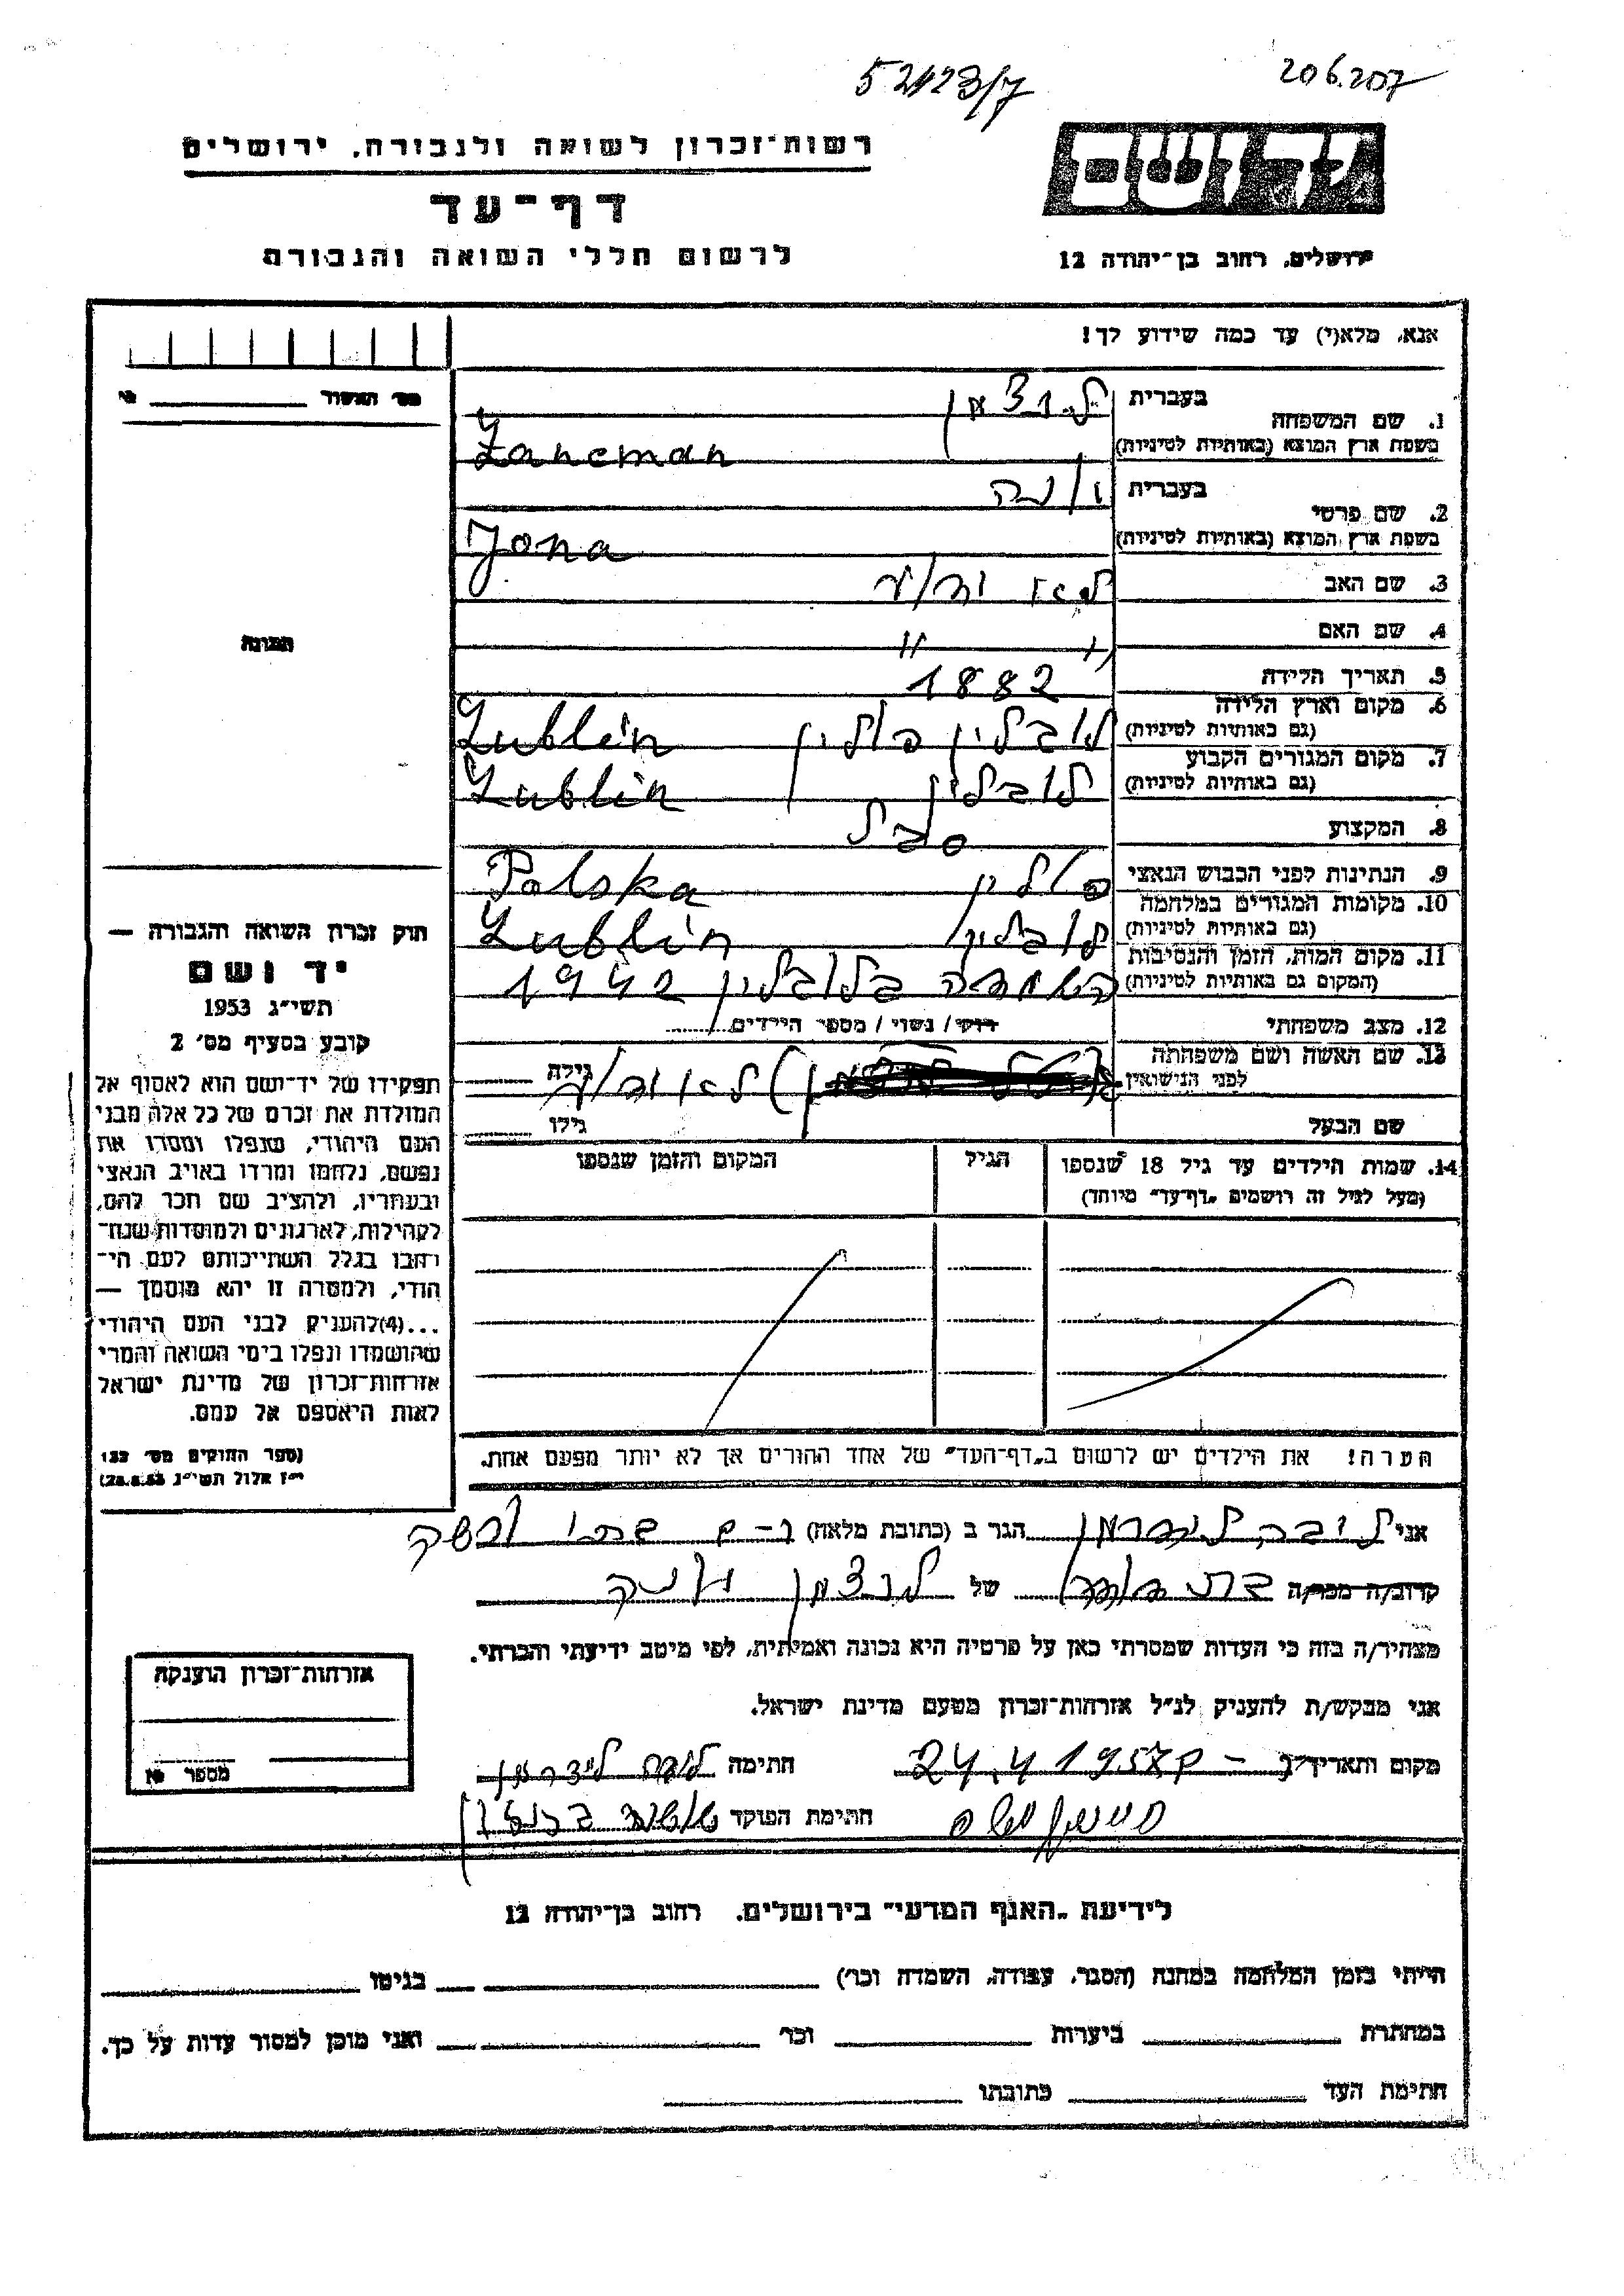 52423/7
206.207
רשות־זכרון לשואה ולגבורה, ירושלים
דף־עד
לרשום חללי השואה והגבורה
יד ושם
ירושלים, רחוב בן־יהודה 12
אנא, מלא(י) עד כמה שידוע לך!
1. שם המשפחה
בעברית לנצמן
בשפת ארץ המוצא (באותיות לטיניות) Lancman
2. שם פרטי
בעברית יונה
בשפת ארץ המוצא (באותיות לטיניות) Jona
3. שם האב לא ידוע
4. שם האם "
5. תאריך הלידה 1882
6. מקום וארץ הלידה
(גם באותיות לטיניות) לובלין פולין Lublin
7. מקום המגורים הקבוע
(גם באותיות לטיניות) לובלין Lublin
8. המקצוע סבל
9. הנתינות לפני הכבוש הנאצי פולין Polska
10. מקומות המגורים במלחמה
(גם באותיות לטיניות) לובלין Lublin
11. מקום המות, הזמן והנסיבות
(המקום גם באותיות לטיניות) השמדה בלובלין 1942
12. מצב משפחתי רווק/ נשוי/ מספר הילדים
13. שם האשה ושם משפחתה
לפני הנישואין לא ידוע גילה
שם הבעל גילו
14. שמות הילדים עד גיל 18 שנספו
(מעל לגיל זה רושמים "דף־עד" מיוחד)
הגיל
המקום והזמן שנספו
הערה! את הילדים יש לרשום ב"דף־העד" של אחד ההורים אך לא יותר מפעם אחת.
מס' האשור
תמונה
חוק זכרון השואה והגבורה —
יד ושם
תשי"ג 1953
קובע בסעיף מס' 2
תפקידו של יד־ושם הוא לאסוף אל
המולדת את זכרם של כל אלה מבני
העם היהודי, שנפלו ומסרו את
נפשם, נלחמו ומרדו באויב הנאצי
ובעוזריו, ולהציב שם וזכר להם,
לקהילות, לארגונים ולמוסדות שנח־
רבו בגלל השתייכותם לעם הי־
הודי, ולמטרה זו יהא מוסמך —
...(4)להעניק לבני העם היהודי
שהושמדו ונפלו בימי השואה והמרי
אזרחות־זכרון של מדינת ישראל
לאות היאספם אל עמם.
(ספר החוקים מס' 132
י"ז אלול תשי"ג 28.8.53)
אני ליבה לינדרמן הגר ב (כתובת מלאה)
קרוב/ה מכר/ה של לנצמן יונה
מצהיר/ה בזה כי העדות שמסרתי כאן על פרטיה היא נכונה ואמיתית, לפי מיטב ידיעתי והכרתי.
אני מבקש/ת להעניק לנ"ל אזרחות־זכרון מטעם מדינת ישראל.
מקום ותאריך 24.4 1957 חתימה
חתימת הפוקד
אזרחות־זכרון הוענקה
מספר
לידיעת "האגף המדעי" בירושלים, רחוב בן־יהודה 12
הייתי בזמן המלחמה במחנה (הסגר, עבודה, השמדה וכו') בגיטו
במחתרת ביערות וכו' ואני מוכן למסור עדות על כך.
חתימת העד כתובתו